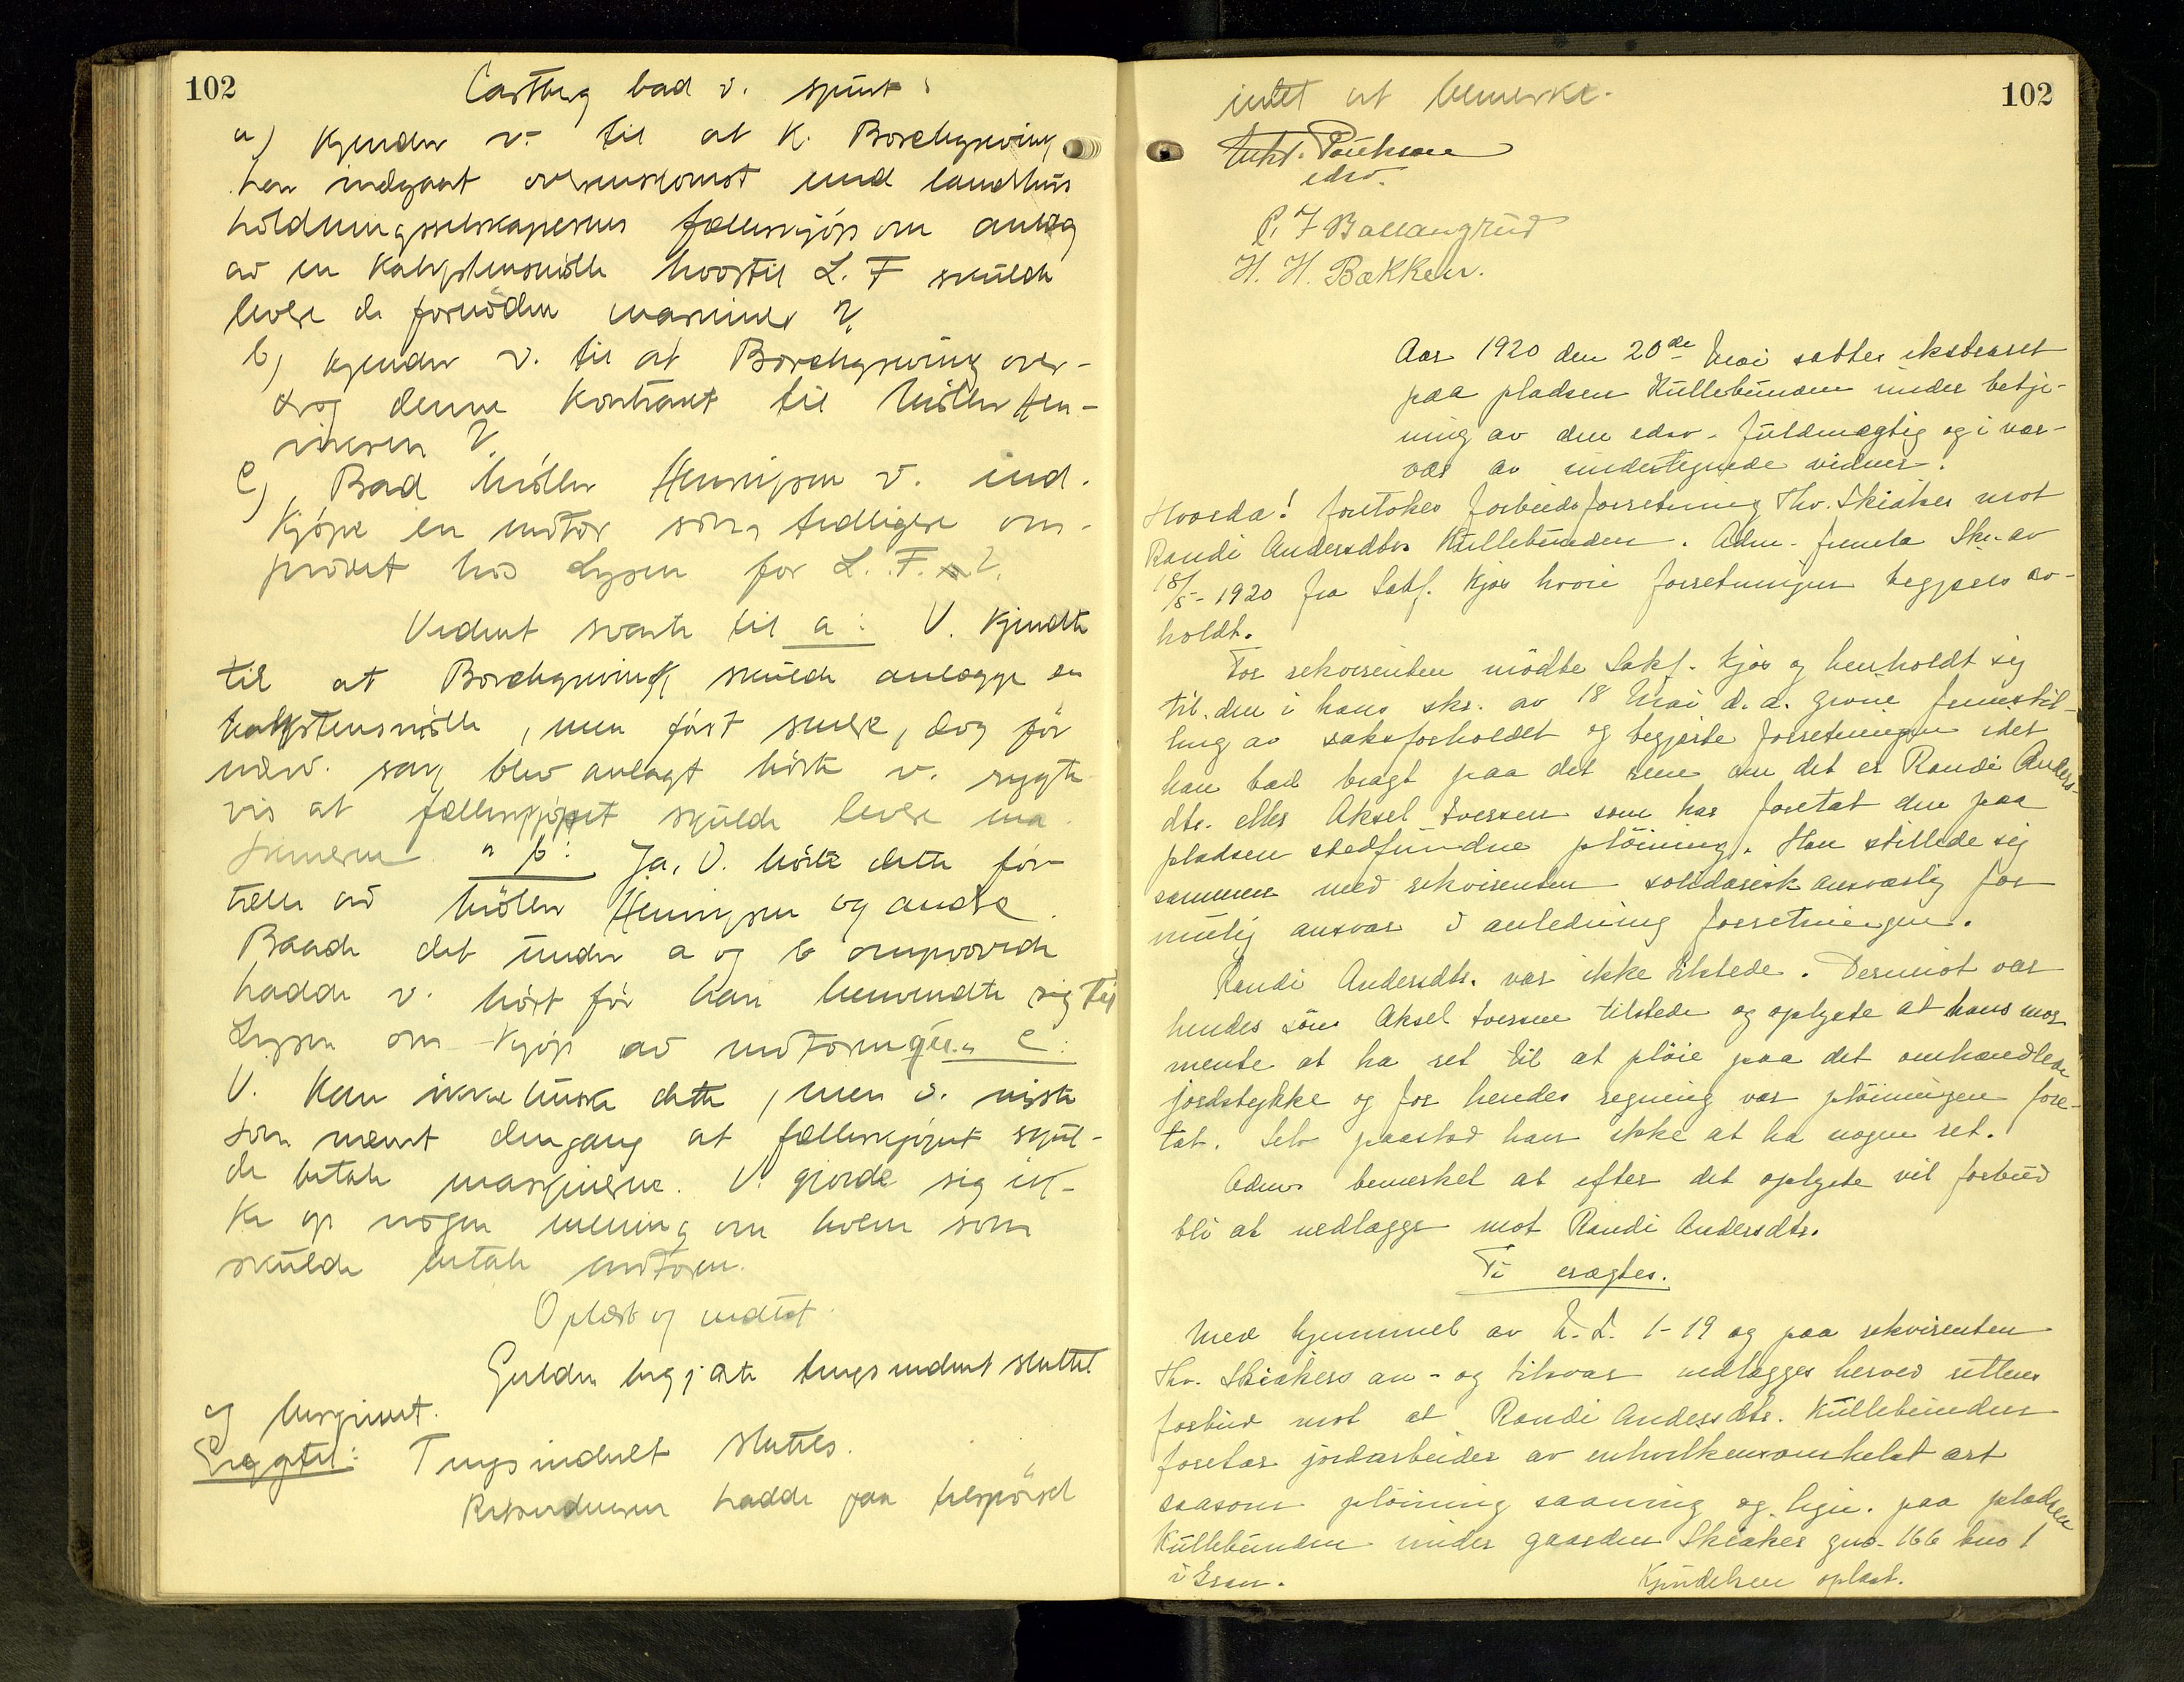 102
Castberg bad v. spurt:
a) Kjender v. til at K. Borchgrevink
har indgaat overenskomst med landhus
holdningsselskapernes fælleskjøp om anlæg
av en kalkstensmølle hvortil L. F skulde
levere de fornødne maskiner?
b) Kjender v. til at Borchgrevink over-
drog denne kontrakt til Møller Hen-
riksen?
c) Bad Møller Henriksen v. ind-
kjøpe en motor som tidligere om-
prøvet hos Lysen for L. F.?
Vidnet svarte til a: V. kjendte
til at Borchgrevink skulde anlægge en
kalkstensmølle, men først senere, dog før
nærv. sag blev anlagt hørte v. rygte-
vis at fælleskjøpet skulde levere ma
skinerne " b: Ja, V. hørte dette for-
tælle av Møller Henriksen og andre.
Baade det under a og b omprøvede
hadde v. hørt før han henvendte sig til
Lysen om kjøp av motoren " c:
V. kan ikke huske dette, men v. visste
som nævnt dengang at fælleskjøpet skul-
de betale maskinerne. V. gjorde sig ik-
ke op nogen mening om hvem som
skulde betale motoren.
Oplæst og vedtat.
Gulden begjærte tingsvidnet sluttet
og beskrevet.
Eragtet: Tingsvidnet sluttes.
Rekvirenten hadde paa tilspørsel
102
intet at bemerke.
Poulsson
edsv.
P. J Ballangrud
H. H. Bækken.
Aar 1920 den 20de Mai sattes ekstraret
paa pladsen Kullebunden under betje-
ning av den edsv. fuldmægtig og i vær-
vær av undertegnede vidner.
Hvorda! foretokes forbudsforretning Thv. Skiaker mot
Randi Andersdtr. Kullebunden. Adm. fremla Skr. av
18/5-1920 fra Sakf. Kjos hvori forretningen begjæres av-
holdt.
For rekvirenten mødte Sakf. Kjos og henholdt sig
til den i hans skr. av 18 Mai d. a. givne fremstil-
ling av saksforholdet og begjærte forretningen idet
han bad bragt paa det rene om det er Randi Anders-
dtr. eller Aksel Iversen som har foretat den paa
pladsen stedfundne pløining. Han stillede sig
sammen med rekvirenten solidarisk ansvarlig for
mulig ansvar i anledning forretningen.
Randi Andersdtr. var ikke tilstede. Derimot var
hendes søn Aksel Iversen tilstede og oplyste at hans mor
mente at ha ret til at pløie paa det omhandlede
jordstykke og for hendes regning var pløiningen fore-
tat. Selv paastod han ikke at ha nogen ret.
Adm. bemerket at efter det oplyste vil forbud
bli at nedlægge mot Randi Andersdtr.
Ti eragtes.
Med hjemmel av N. L. 1-19 og paa rekvirenten
Thv. Skiakers an- og tilsvar nedlægges herved rettens
forbud mot at Randi Andersdtr. Kullebunden
foretar jordarbeider av enhvilkensomhelst art
saasom pløining saaning og lign. paa pladsen
Kullebunden under gaarden Skiaker gno. 166 bno 1
i Gran. Kjendelsen oplæst.